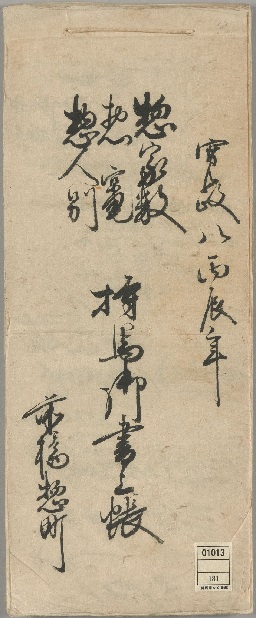 寛政八丙辰年
惣家数
惣竃
惣人別
持馬御書上帳
前橋惣町
01013
131